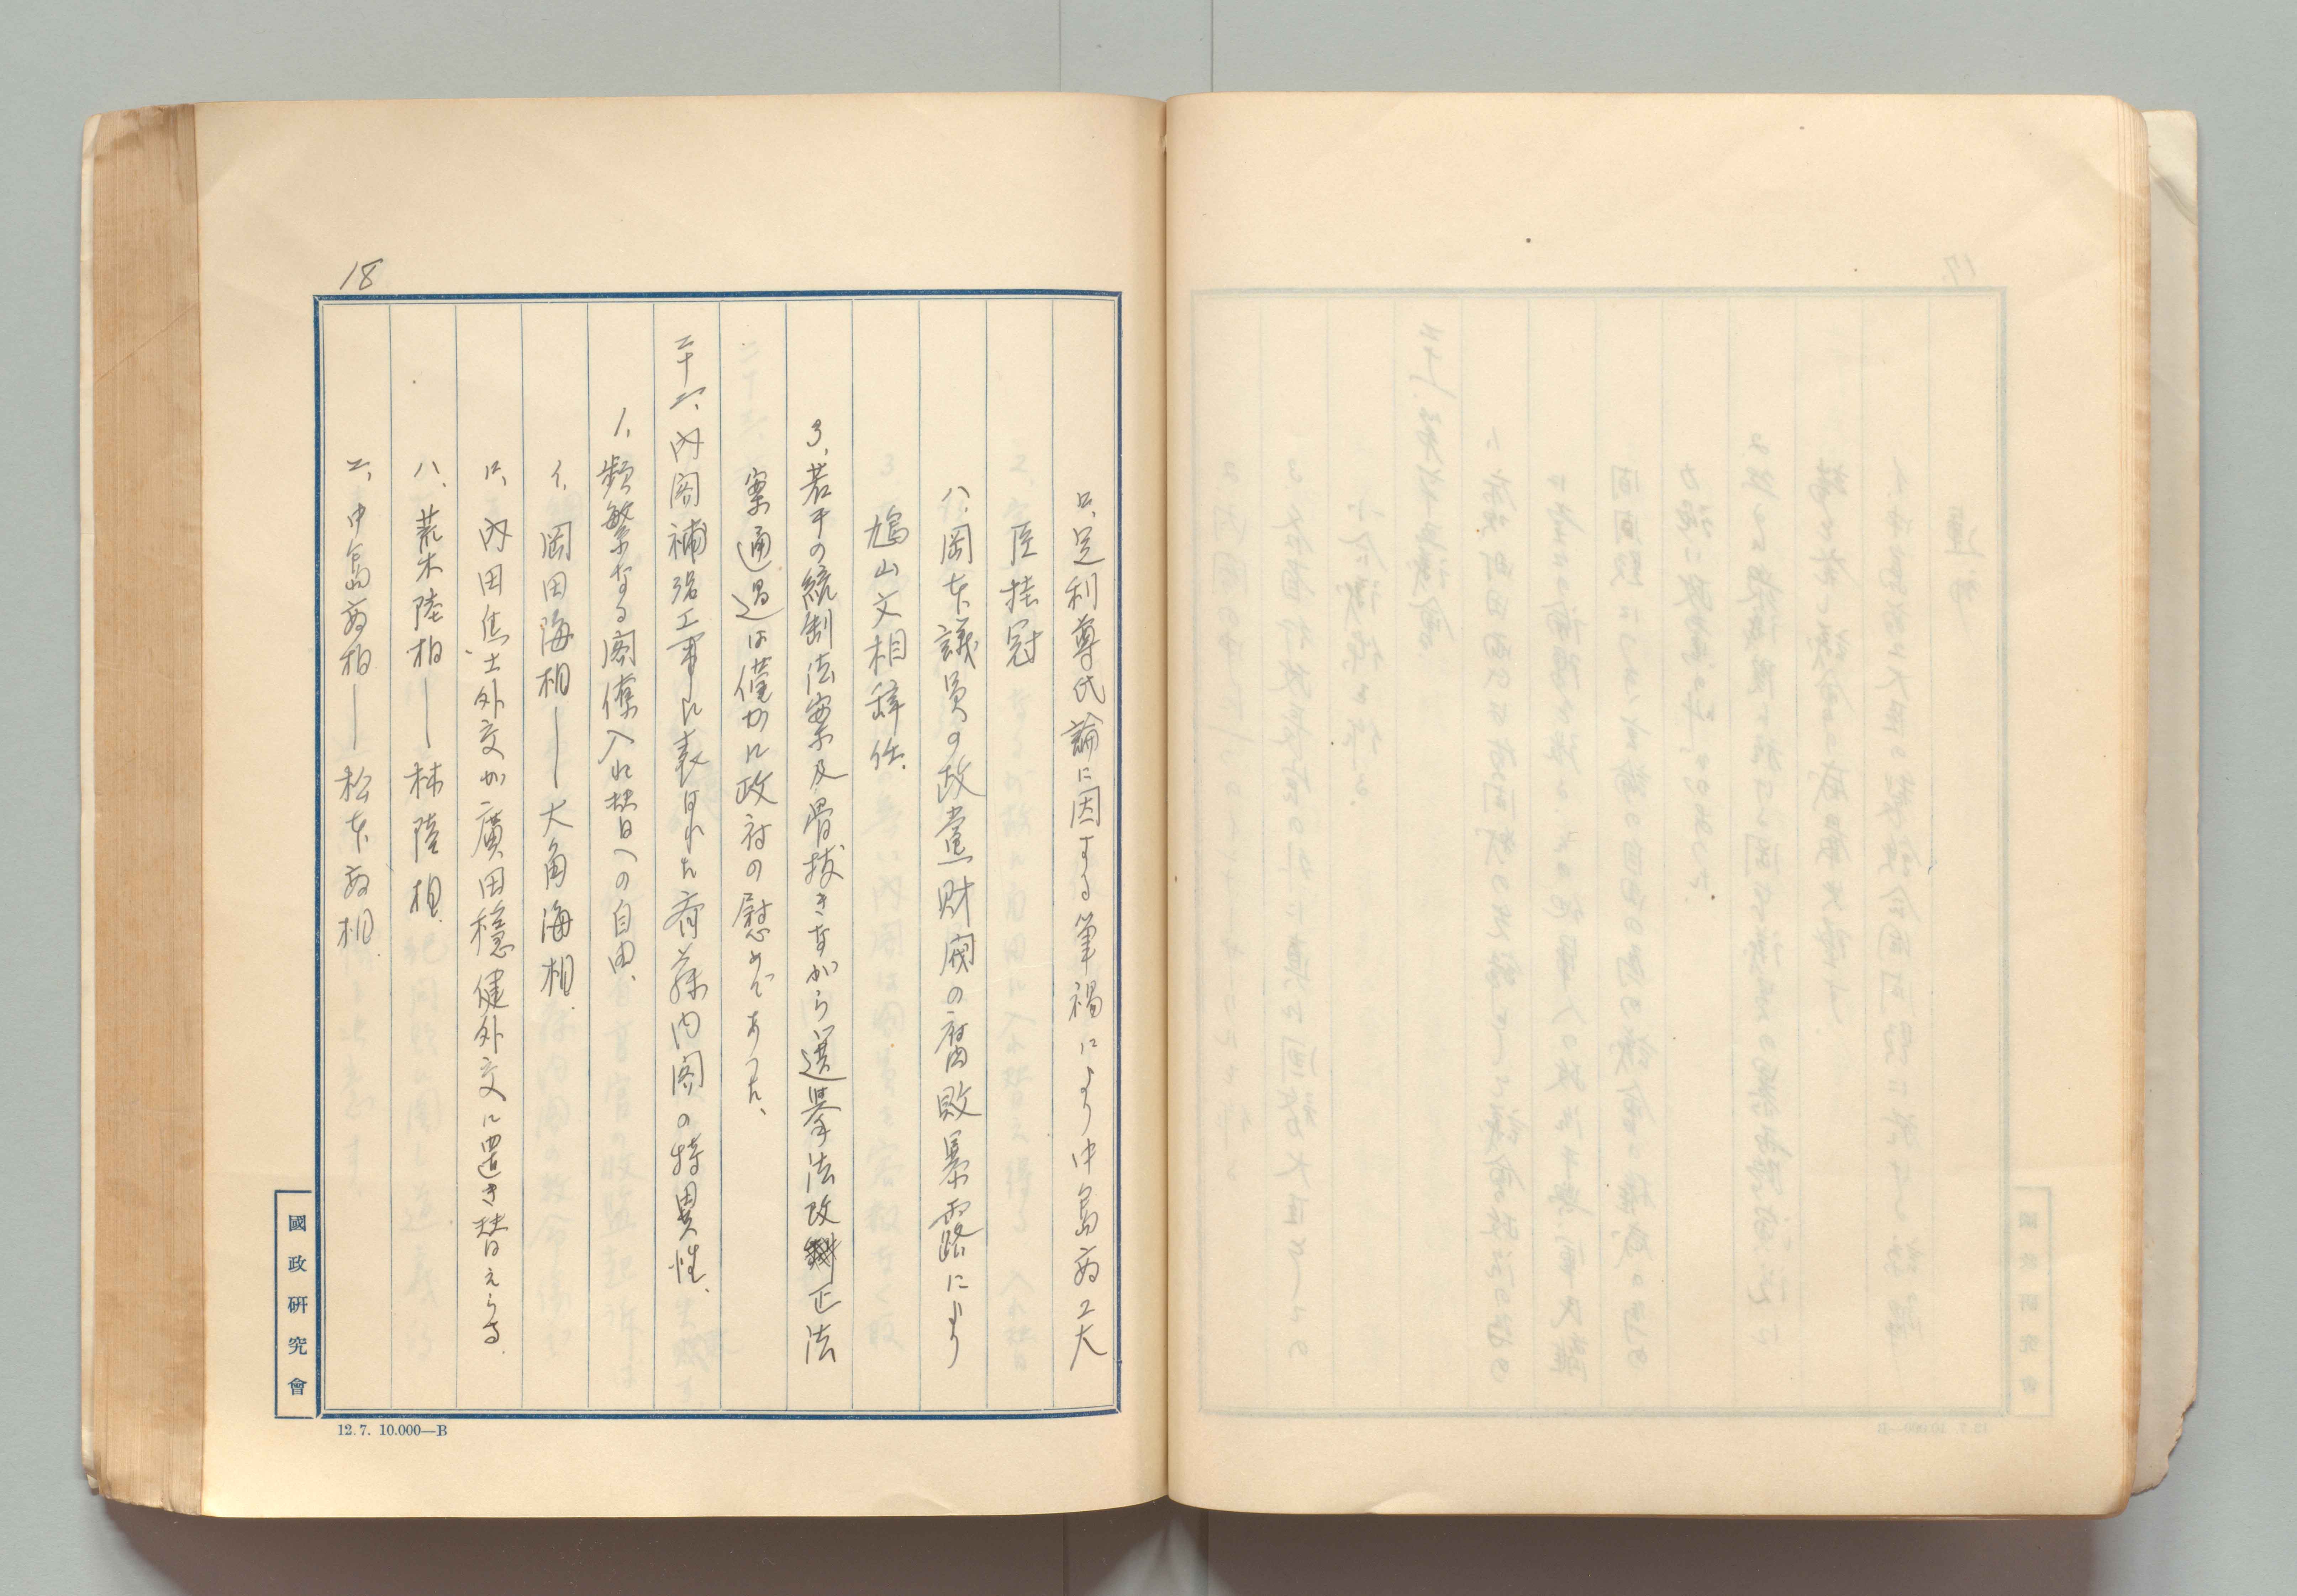 18
ロ、足利尊氏論に因する筆禍により中島商工大
臣挂冠
ハ、岡本議員の政党財閥の腐敗暴露により
鳩山文相辞任.
3、若干の統制法案及骨抜きながら選挙法改正法
案通過は僅かに政府の慰めであった、
二十二、内閣補強工事に表はれた斉藤内閣の特異性.
1、頻繁なる閣僚入れ替への自由、
イ、岡田海相――大角海相.
ロ、内田焦土外交が廣田穏健外交に置き替えらる.
ハ、荒木陸相――林陸相.
ニ、中島商相――松本商相.
國政研究會
12.7. 10.000—B